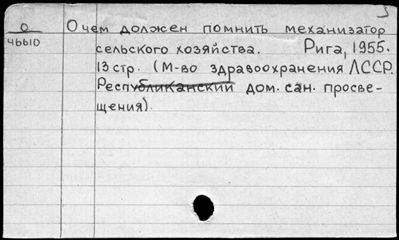 О
46610
О чем должен помнить механизатор
сельского хозяйства. Рига, 1955.
13 стр. (М-во здравоохранения ЛССР.
Республиканский дом. сан. просве-
щения).